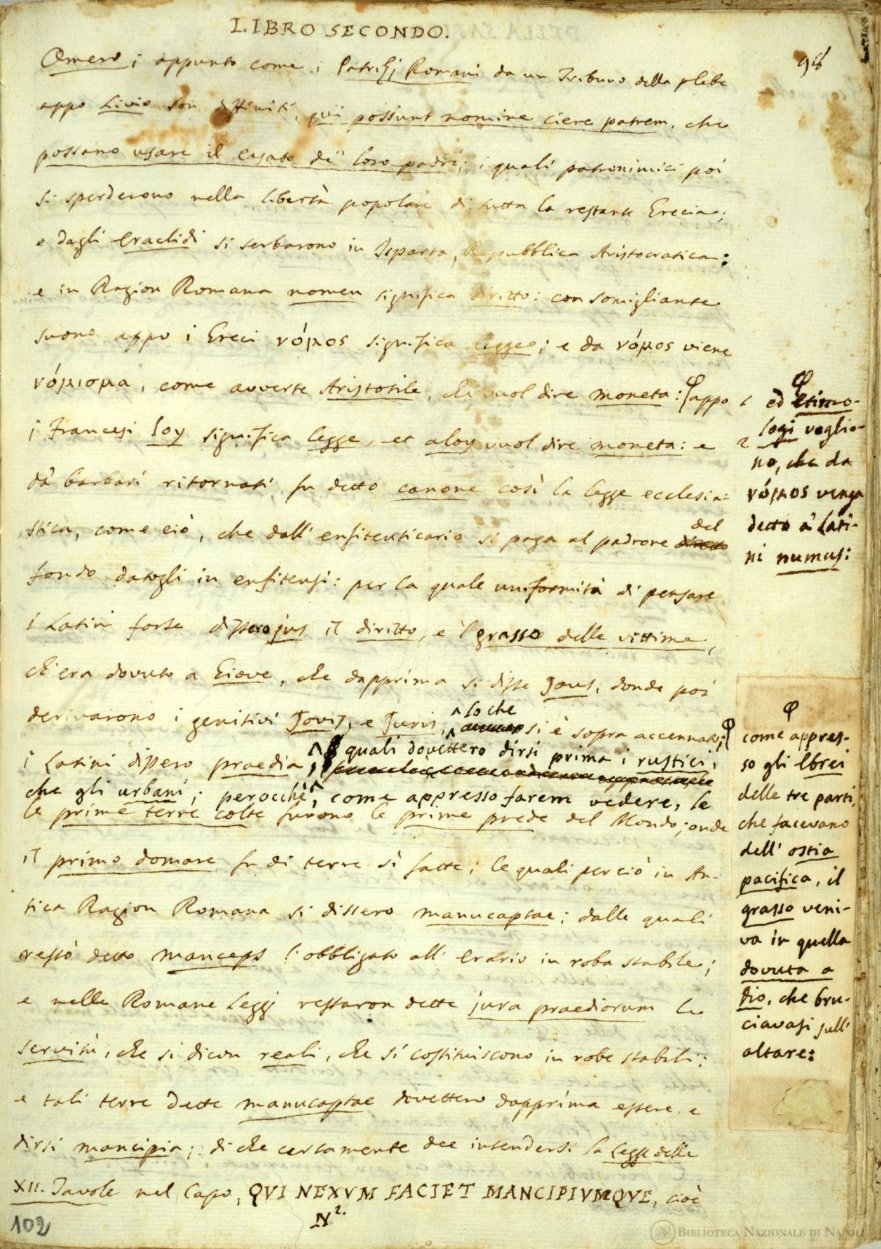 LIBRO SECONDO.
98
Omero; appunto come i Patrizj Romani da un Tribuno della plebe
appo Livio son diffiniti, qui possunt nomine ciere patrem, che
possano usare il casato de' loro padri; i quali patronimici poi
si sperderono nella libertà popolare di tutta la restante Grecia;
e dagli Eraclidi si serbarono in Isparta, Repubblica Aristocratica:
e in Ragion Romana nomen significa diritto: con somigliante
suono appo i Greci νόμος significa legge; e da νόμος viene
νόμισμα, come avverte Aristotile, che vuol dire moneta: φ appo
i Francesi loy significa legge, et aloy vuol dire moneta: e
da' barbari ritornati fu detto canone così la legge ecclesia=
stica, come ciò, che dall' enfiteuticario si paga al padrone del
fondo datogli in enfiteusi: per la quale uniformità di pensare
i Latini forse dissero jus il diritto, e 'l grasso delle vittime,
ch'era dovuto a Giove, che dapprima si disse Jous, donde poi
derivarono i genitivi Jovis, e Juris, lo che si è sopra accennato; φ
i Latini dissero praedia, i quali dovettero dirsi prima i rustici,
che gli urbani; perocchè, come appresso farem vedere, le
le prime terre colte furono le prime prede del Mondo; onde
il primo domare fu di terre sì fatte; le quali perciò in An-
tica Ragion Romana si dissero manucaptae; dalle quali
restò detto manceps l'obbligato all' Erario in roba stabile;
e nelle Romane Leggi restaron dette jura praediorum le
servitù, che si dicon reali, che si costituiscono in robe stabili:
e tali terre dette manucaptae dovettero dapprima essere, e
dirsi mancipia; di che certamente dee intendersi la Legge delle
XII. Tavole nel Capo, QVI NEXVM FACIET MANCIPIVMQVE, cioè
N2.
102
φ
ed etimo-
logi voglio-
no, che da
νόμος venga
detto a' Lati-
ni numus:
φ
come appres-
so gli Ebrei
delle tre parti
che facevano
dell' ostia
pacifica, il
grasso veni-
va in quella
dovuta a
Dio, che bru-
ciavasi sull'
altare:
BIBLIOTECA NAZIONALE DI NAPOLI